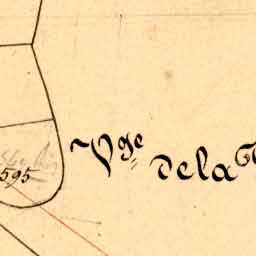 Vge de la
595